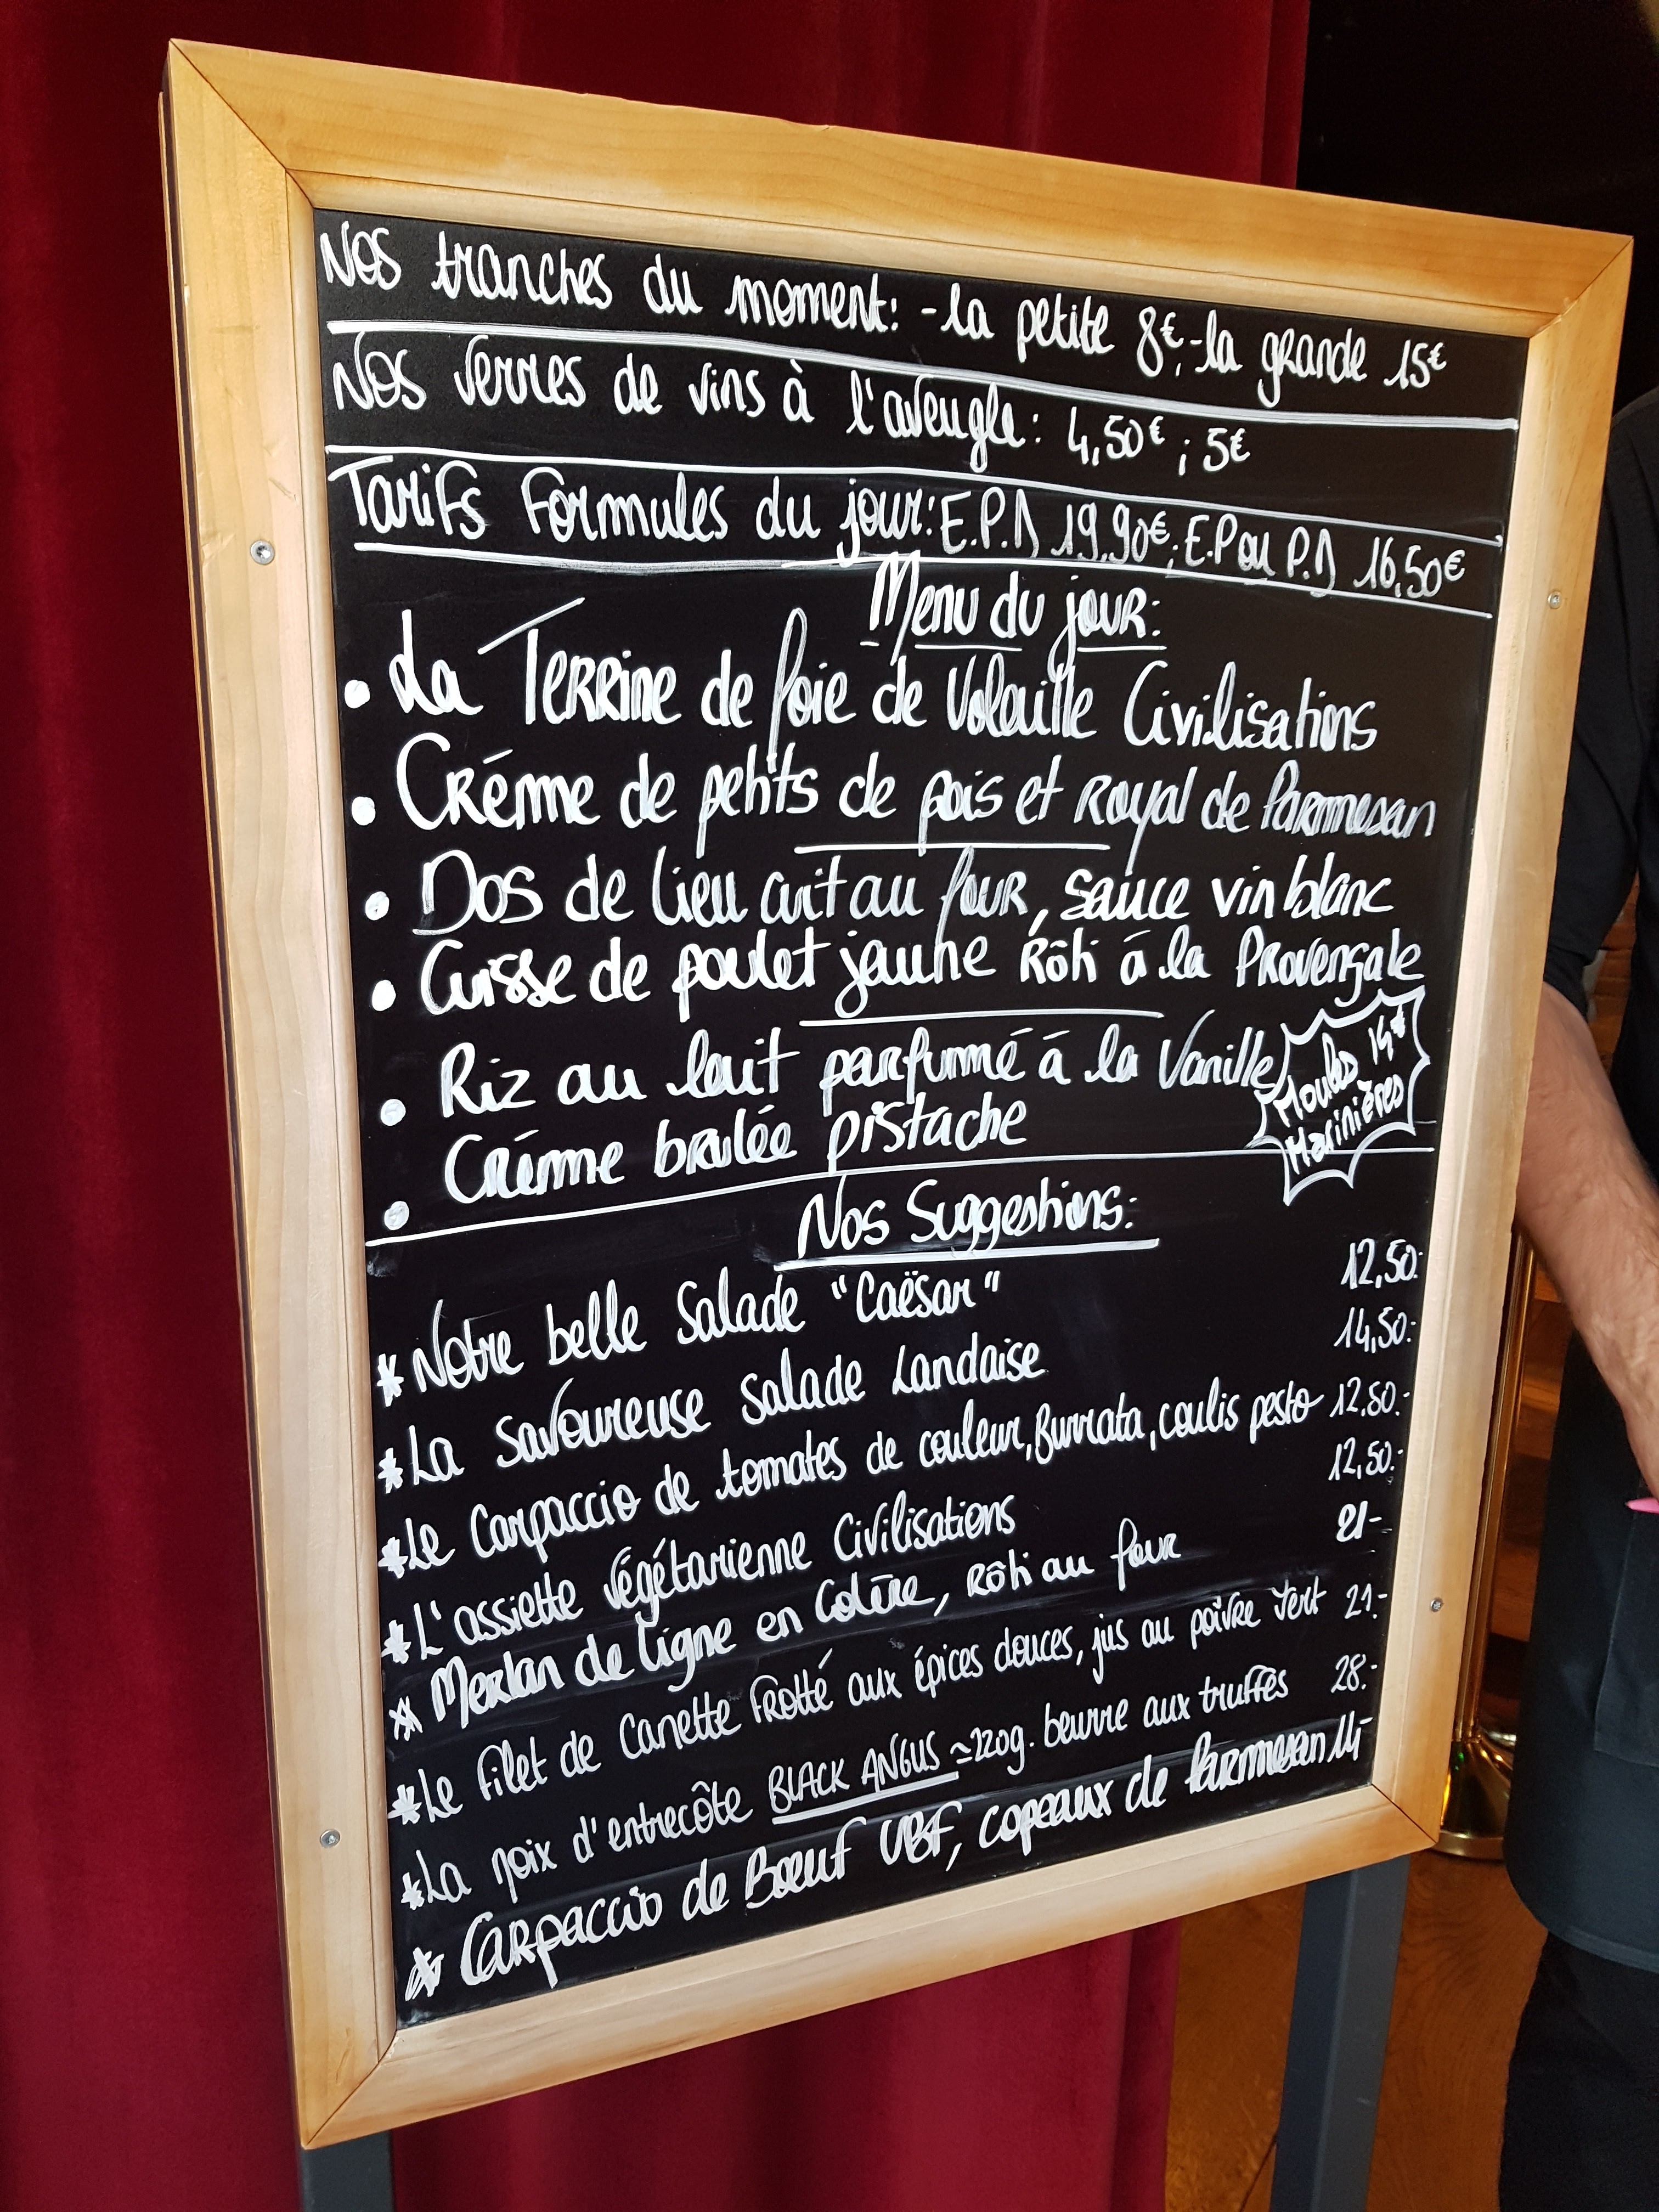 Nos tranches du moment: -la petite 8€;-la grande 15€
Nos verres de vins à l'aveugle: 4,50€ ; 5€
Tarifs Formules du jour: E.P.D 19.90€; E.P ou P.D 16,50€
Menu du jour:
• La Terrine de foie de Volaille Civilisations
• Créme de petits de pois et Royal de Parmesan
• Dos de lieu cuit au four, sauce vin blanc
• Cuisse de poulet jaune Rôti á la Provençale
• Riz au lait parfumé á la Vanille
• Créme brulée pistache
Moules 14€
Marinières
Nos Suggestions:
* Notre belle Salade "Caësar" 12,50.-
* La Savoureuse Salade Landaise 14,50.-
* Le Carpaccio de tomates de couleur, Burrata, coulis pesto 12,50.-
* L'assiette végétarienne Civilisations 12,50.-
* Merlan de ligne en Colère, Rôti au four 21-
* Le Filet de Canette Frotté aux épices douces, jus au poivre vert 21.-
* La noix d'entrecôte BLACK ANGUS ≃220g. beurre aux truffes 28.-
* Carpaccio de Bœuf VBF, copeaux de Parmesan 14-